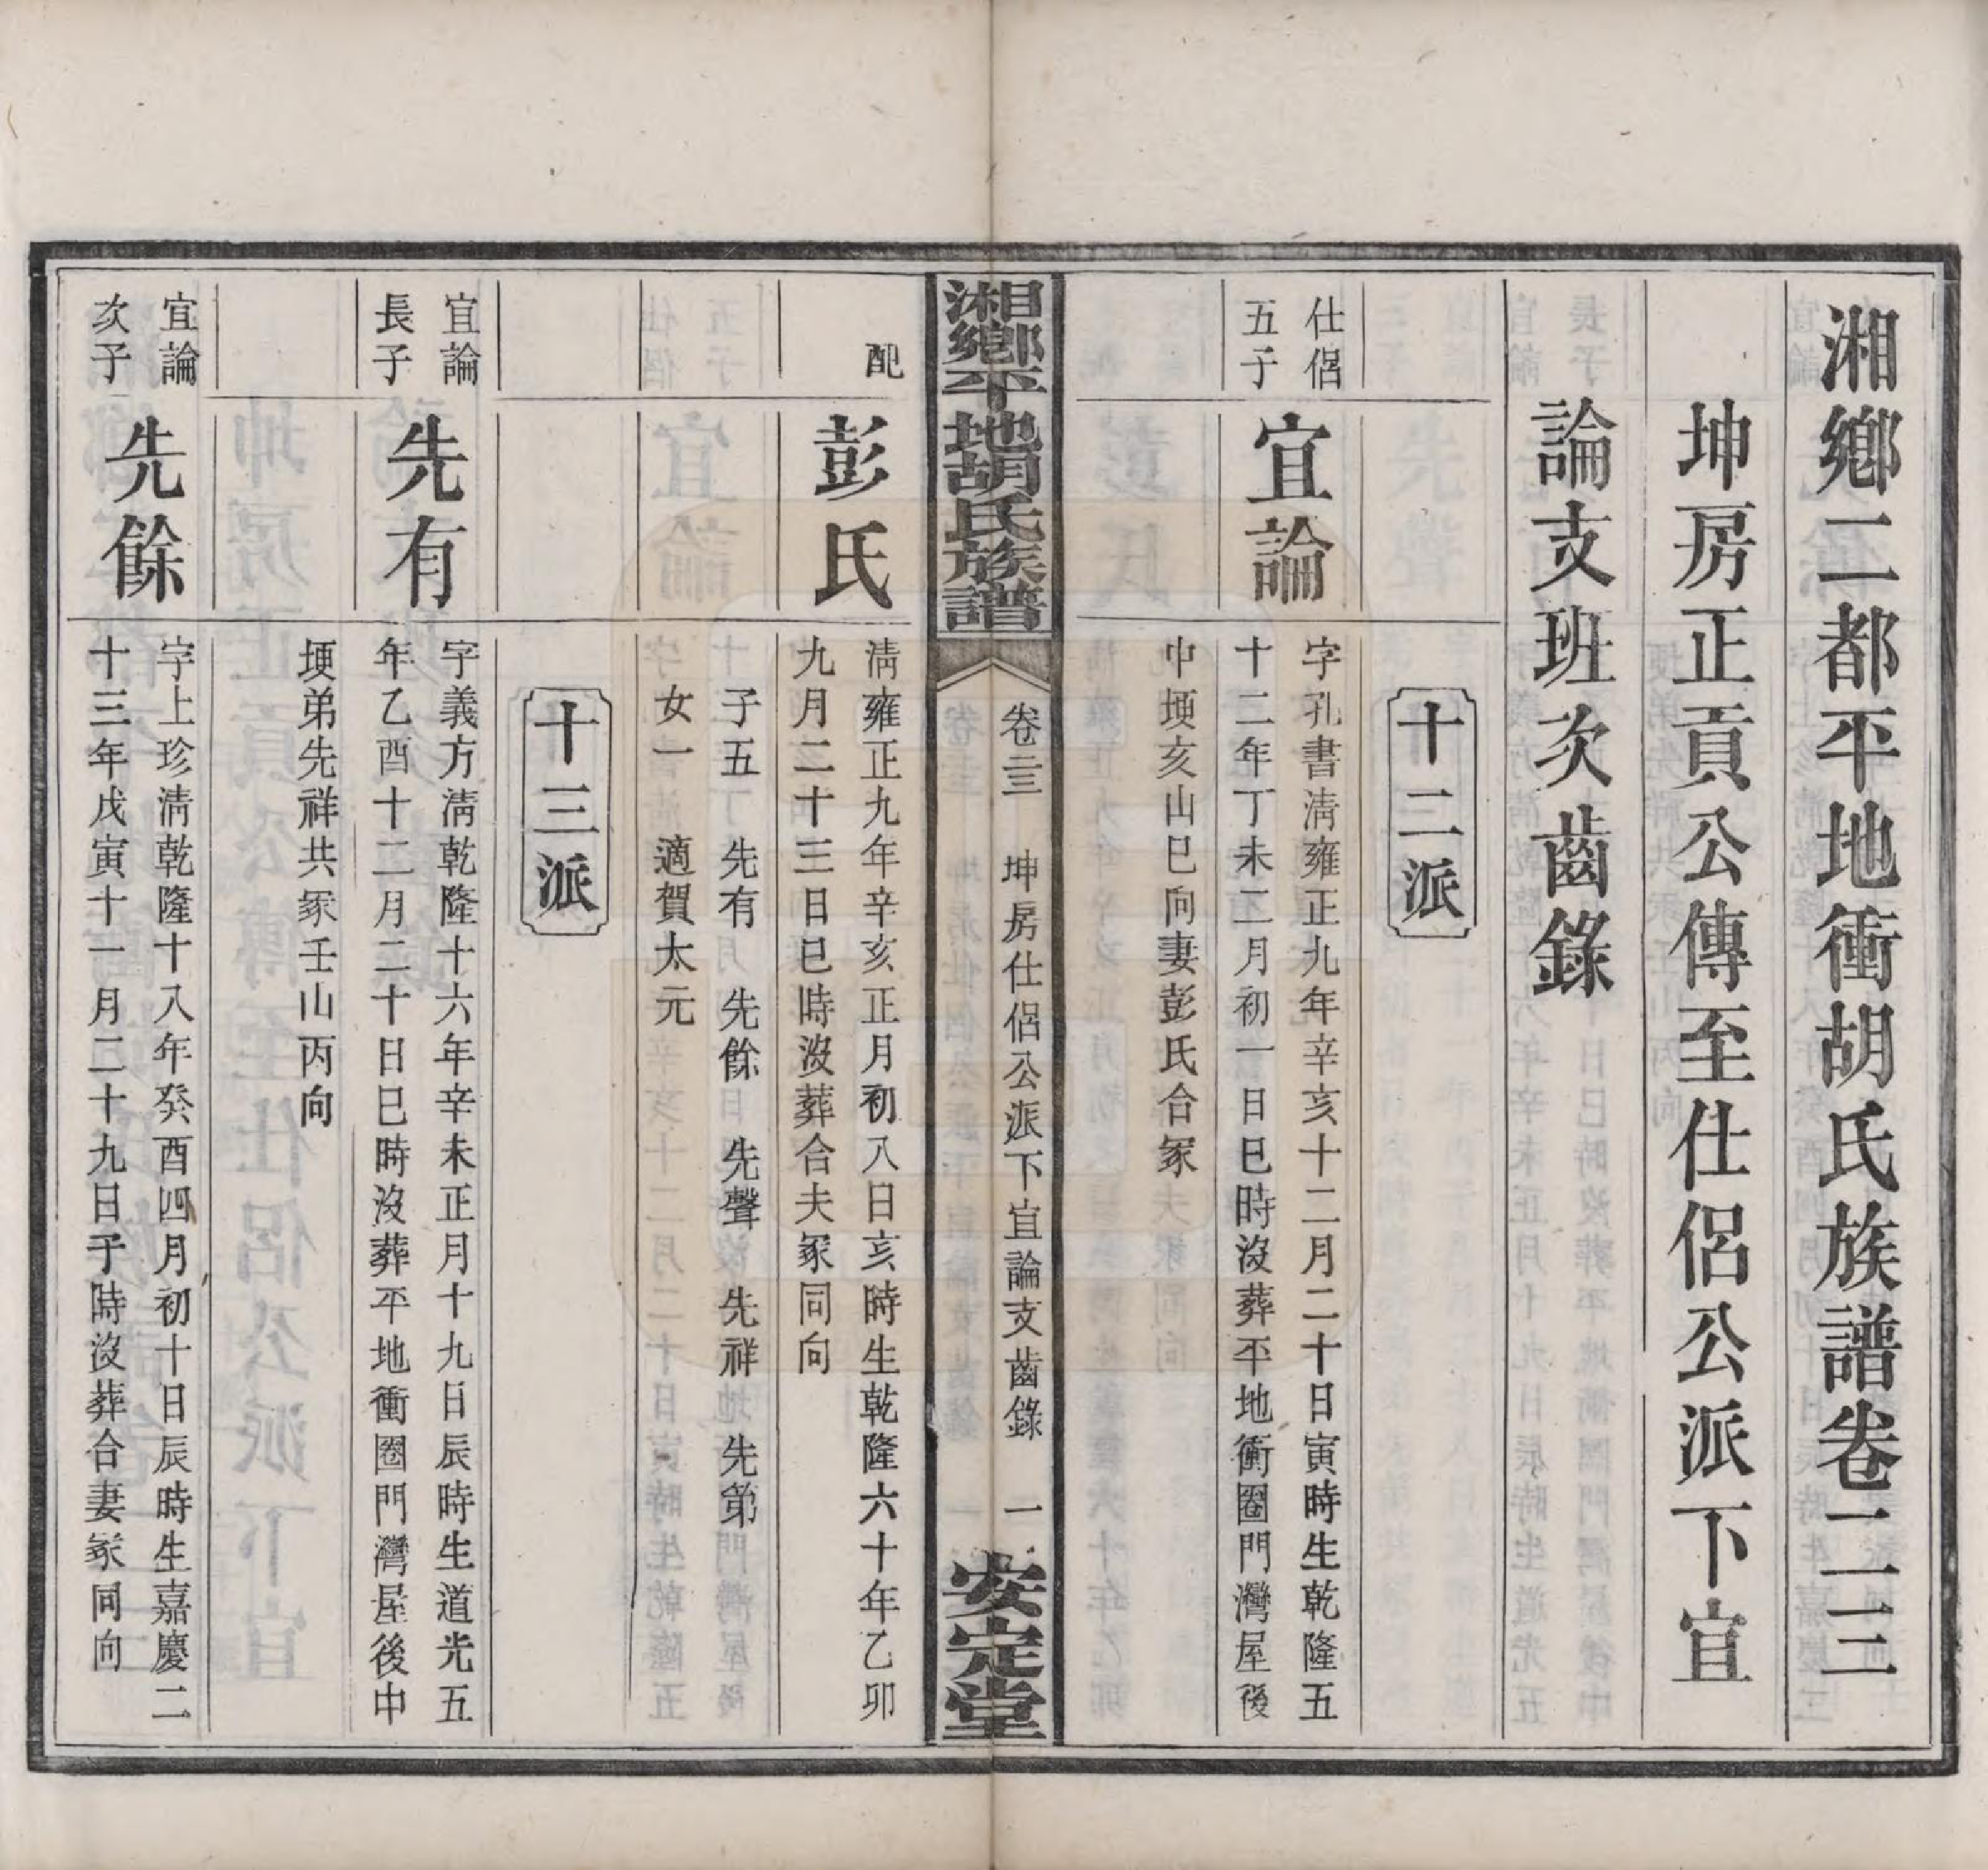 湘鄉二都平地衝胡氏族譜卷二三
坤房正貢公傳至仕侶公派下宜
論支班次齒錄
十二派
仕侶
五子
宜論
字孔書淸雍正九年辛亥十二月二十日寅時生乾隆五
十二年丁未二月初一日巳時沒葬平地衝圈門灣屋後
中堧亥山巳向妻彭氏合冢
湘鄉平地胡氏族譜
卷二三
坤房仕侶公派下宜論支齒錄
一
安定堂
配
彭氏
淸雍正九年辛亥正月初八日亥時生乾隆六十年乙卯
九月二十三日巳時沒葬合夫冢同向
子五 先有 先餘 先聲 先祥 先第
女一 適賀太元
十三派
宜論
長子
先有
字義方淸乾隆十六年辛未正月十九日辰時生道光五
年乙酉十二月二十日巳時沒葬平地衝圈門灣屋後中
堧弟先祥共冢壬山丙向
宜論
次子
先餘
字上珍淸乾隆十八年癸酉四月初十日辰時生嘉慶二
十三年戊寅十一月二十九日子時沒葬合妻冢同向